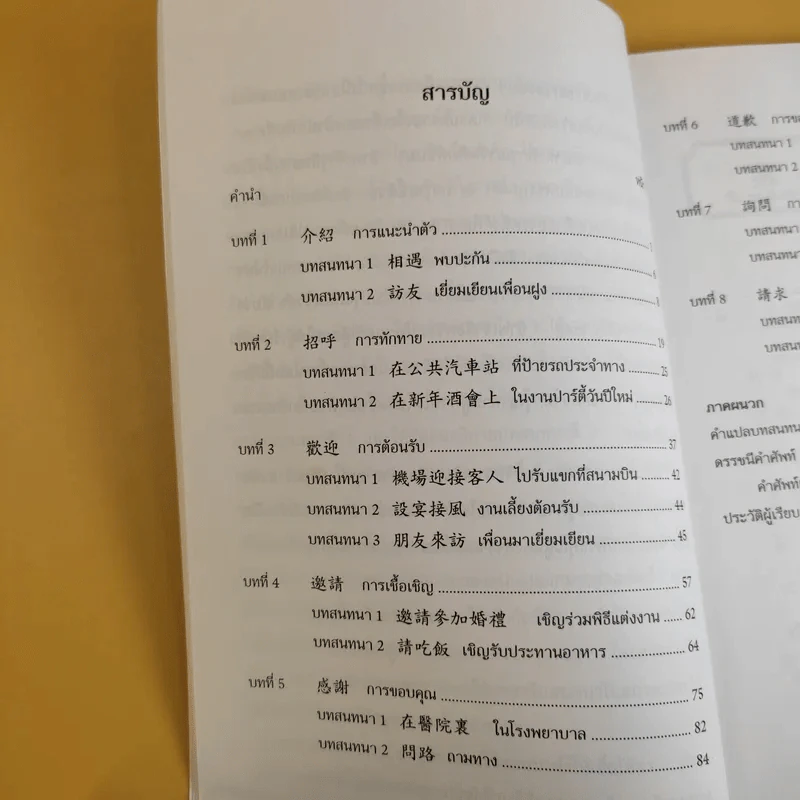 สารบัญ
คำนำ
บทที่ 1 介紹 การแนะนำตัว
บทสนทนา 1 相遇 พบปะกัน
บทสนทนา 2 訪友 เยี่ยมเยียนเพื่อนฝูง
บทที่ 2 招呼 การทักทาย 19
บทสนทนา 1 在公共汽車站 ที่ป้ายรถประจำทาง 25
บทสนทนา 2 在新年酒會上 ในงานปาร์ตี้วันปีใหม่ 26
บทที่ 3 歡迎 การต้อนรับ 37
บทสนทนา 1 機場迎接客人 ไปรับแขกที่สนามบิน 42
บทสนทนา 2 設宴接風 งานเลี้ยงต้อนรับ 44
บทสนทนา 3 朋友來訪 เพื่อนมาเยี่ยมเยียน 45
บทที่ 4 邀請 การเชื้อเชิญ 57
บทสนทนา 1 邀請參加婚禮 เชิญร่วมพิธีแต่งงาน 62
บทสนทนา 2 請吃飯 เชิญรับประทานอาหาร 64
บทที่ 5 感謝 การขอบคุณ 75
บทสนทนา 1 在醫院裏 ในโรงพยาบาล 82
บทสนทนา 2 問路 ถามทาง 84
บทที่ 6 道歉
บทสนทนา 1
บทสนทนา 2
บทที่ 7 詢問
บทสนทนา
บทสนทนา
บทที่ 8 請求
บทสน
บทสน
ภาคผนวก
คำแปลบทสนทน
ดรรชนีคำศัพท์
คำศัพท์
ประวัติผู้เรียบ